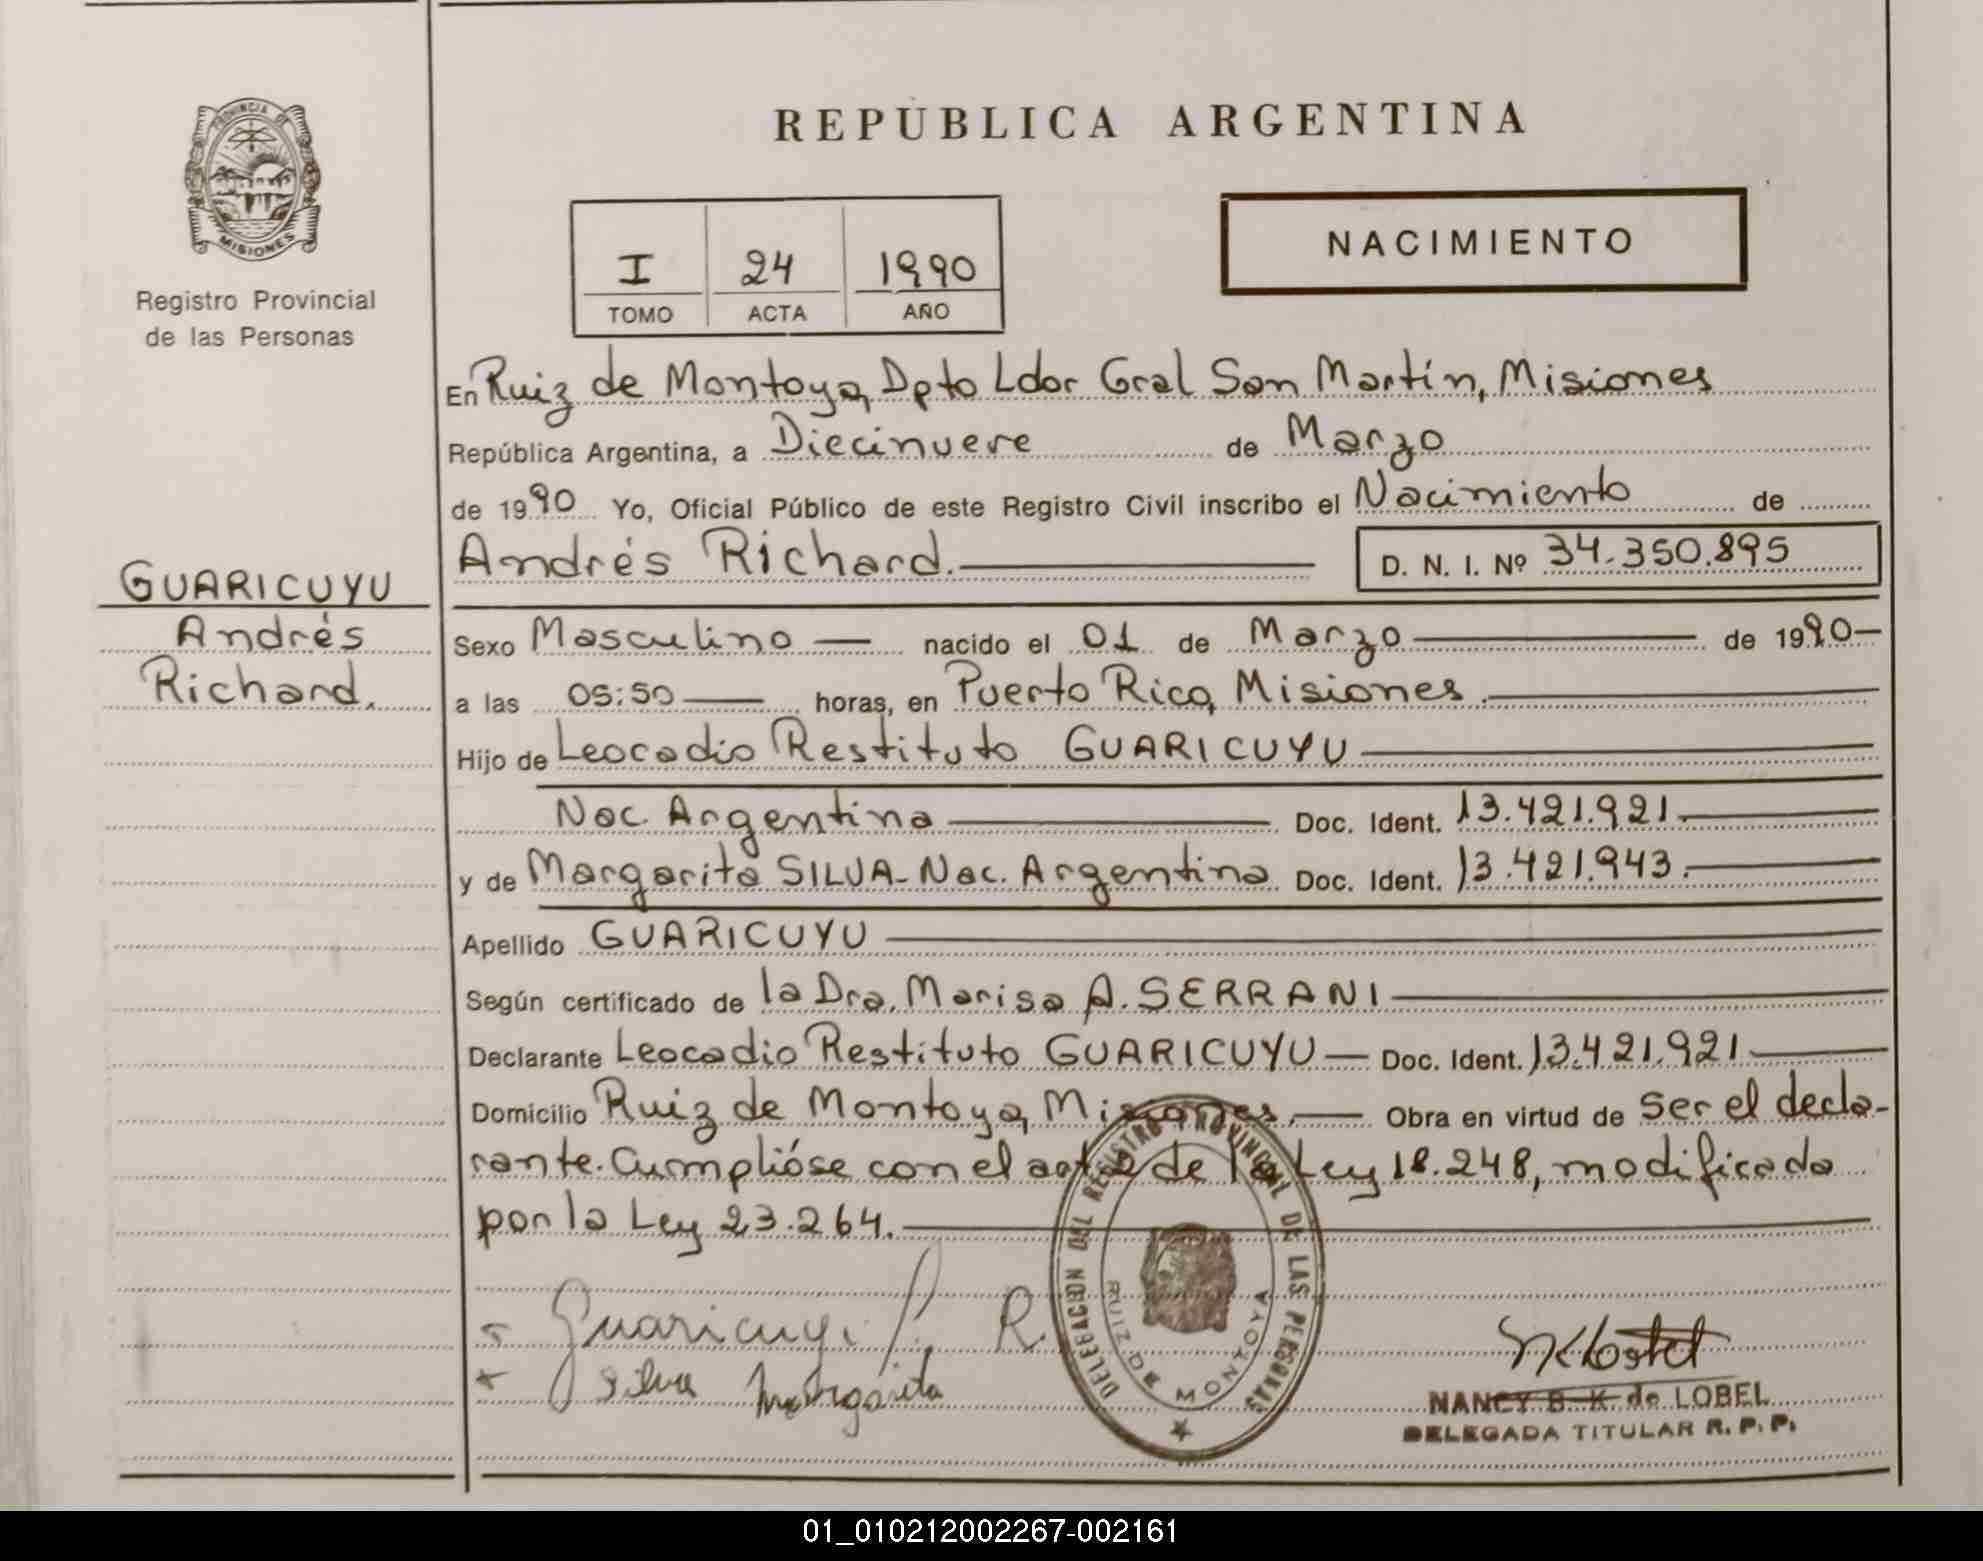 REPÚBLICA ARGENTINA
PROVINCIA DE
MISIONES
Registro Provincial
de las Personas
I 24 1990
TOMO ACTA AÑO
NACIMIENTO
En Ruiz de Montoya, Dpto Ldor Gral San Martín, Misiones
República Argentina, a Diecinueve de Marzo
de 1990 Yo, Oficial Público de este Registro Civil inscribo el Nacimiento de
Andrés Richard. D. N. I. Nº 34.350.895
GUARICUYU
Andrés
Richard.
Sexo Masculino nacido el 01 de Marzo de 1990
a las 05:50 horas, en Puerto Rico, Misiones.
Hijo de Leocadio Restituto GUARICUYU
Nac. Argentina Doc. Ident. 13.421.921.
y de Margarita SILVA- Nac. Argentina Doc. Ident. 13.421.943.
Apellido GUARICUYU
Según certificado de la Dra. Marisa A. SERRANI
Declarante Leocadio Restituto GUARICUYU Doc. Ident. 13.421.921
Domicilio Ruiz de Montoya, Misiones. Obra en virtud de ser el decla-
rante. Cumplióse con el art 2 de la Ley 18.248, modificada
por la Ley 23.264.
Guaricuyu R.
Silva Margarita
DELEGACION DEL REGISTRO PROVINCIAL DE LAS PERSONAS
RUIZ DE MONTOYA
NANCY B. K. de LOBEL
DELEGADA TITULAR R. P. P.
01_010212002267-002161